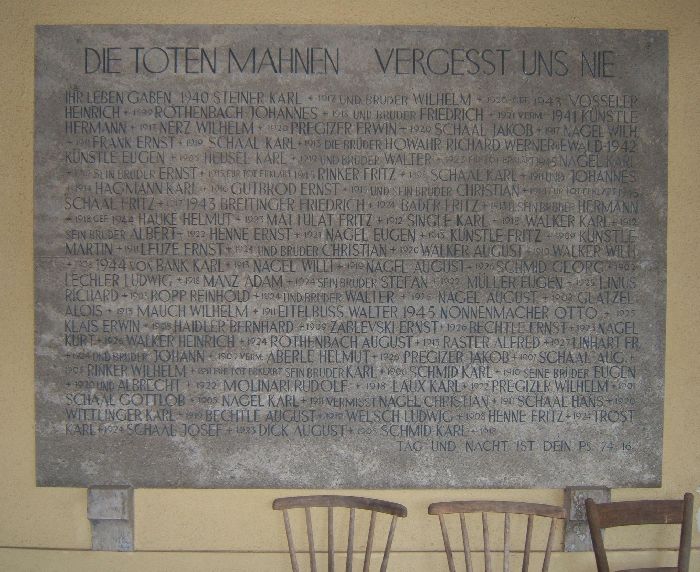 DIE TOTEN MAHNEN VERGESST UNS NIE
IHR LEBEN GABEN 1940 STEINER KARL + 1917 UND BRUDER WILHELM + 1926 GEF. 1943 VOSSELER
HEINRICH + ROTHENBACH JOHANNES + 1913 UND BRUDER FRIEDRICH + 1921 VERM. 1941 KÜNSTLE
HERMANN + 1913 NERZ WILHELM + 1920 PREGIZER ERWIN + 1920 SCHAAL JAKOB + 1917 NAGEL WILH.
+ 1911 FRANK ERNST + 1919 SCHAAL KARL + 1913 DIE BRÜDER HOWAHR RICHARD WERNER U. EWALD 1942
KÜNSTLE EUGEN + HEUSEL KARL + 1919 UND BRUDER WALTER + NAGEL KARL
SEIN BRUDER ERNST + 1915 FÜR TOT ERKLÄRT RINKER FRITZ + SCHAAL KARL + JOHANNES
+ 1914 HAGMANN KARL + GUTBROD ERNST + UND SEIN BRUDER CHRISTIAN +
SCHAAL FRITZ + 1943 BREITINGER FRIEDRICH + 1924 BADER FRITZ + SEIN BRUDER HERMANN
+ 1918 GEF. 1944 HAUKE HELMUT + 1923 MATULAT FRITZ + 1912 SINGLE KARL + 1918 WALKER KARL + 1912
SEIN BRUDER ALBERT + 1922 HENNE ERNST + 1921 NAGEL EUGEN + 1913 KÜNSTLE FRITZ + KÜNSTLE
MARTIN + 1911 LEUZE ERNST + 1924 UND BRUDER CHRISTIAN + 1920 WALKER AUGUST + 1910 WALKER WILH.
+ 1944 VON BANK KARL + 1913 NAGEL WILLI + 1919 NAGEL AUGUST + SCHMID GEORG +
LECHLER LUDWIG + 1918 MANZ ADAM + 1924 SEIN BRUDER STEFAN + 1922 MÜLLER EUGEN + 1925 LINUS
RICHARD + BOPP REINHOLD + 1924 UND BRUDER WALTER + NAGEL AUGUST + GLATZEL
ALOIS + 1913 MAUCH WILHELM + 1911 EITELBUSS WALTER 1945 NONNENMACHER OTTO +
KLAIS ERWIN + HAIDLER BERNHARD + ZABLEVSKI ERNST + 1926 BECHTLE ERNST + 1923 NAGEL
KURT + 1926 WALKER HEINRICH + 1924 ROTHENBACH AUGUST + 1913 RASTER ALFRED + 1927 LINHART FR.
+ 1924 UND BRUDER JOHANN + VERM. ABERLE HELMUT + 1926 PREGIZER JAKOB + SCHAAL AUG.
+ RINKER WILHELM + FÜR TOT ERKLÄRT SEIN BRUDER KARL + SCHMID KARL + 1910 SEINE BRÜDER EUGEN
+ 1920 UND ALBRECHT + 1922 MOLINARI RUDOLF + 1918 LAUX KARL + PREGIZER WILHELM +
SCHAAL GOTTLOB + NAGEL KARL + 1911 VERMISST NAGEL CHRISTIAN + 1911 SCHAAL HANS + 1920
WITTLINGER KARL + BECHTLE AUGUST + WELSCH LUDWIG + HENNE FRITZ + 1924 TROST
KARL + 1924 SCHAAL JOSEF + 1923 DICK AUGUST + SCHMID KARL +
TAG UND NACHT IST DEIN PS. 74. 16.